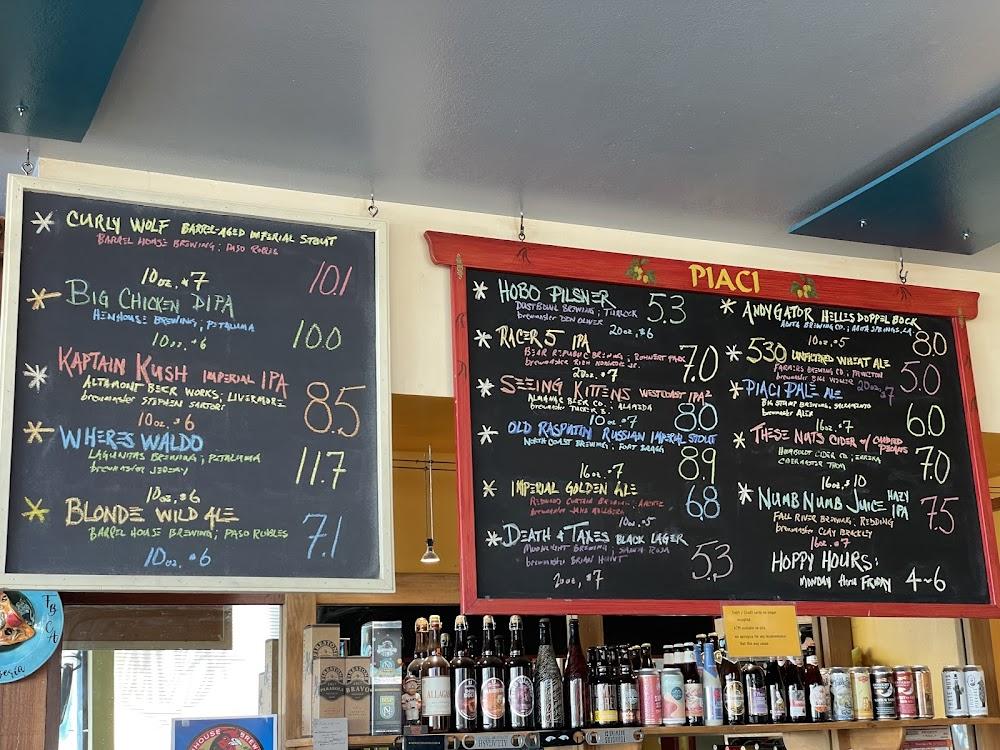 CURLY WOLF BARREL-AGED IMPERIAL STOUT
BARREL HOUSE BREWING; PASO ROBLES
10.1
10 oz. $7
BIG CHICKEN DIPA
HENHOUSE BREWING; PETALUMA
10.0
10 oz. $6
KAPTAIN KUSH IMPERIAL IPA
ALTAMONT BEER WORKS; LIVERMORE
brewmaster STEPHEN SARTORI
8.5
10 oz. $6
WHERES WALDO
LAGUNITAS BREWING; PETALUMA
brewmaster JEREMY
11.7
10 oz. $6
BLONDE WILD ALE
BARREL HOUSE BREWING; PASO ROBLES
7.1
10 oz. $6
PIACI
HOBO PILSNER
DUST BOWL BREWING; TURLOCK
brewmaster DON OLIVER
5.3
20 oz. $6
RACER 5 IPA
BEAR REPUBLIC BREWING; ROHNERT PARK
7.0
20 oz. $7
SEEING KITTENS WEST COAST IPA
ALMANAC BEER CO.; ALAMEDA
8.0
10 oz. $7
OLD RASPUTIN RUSSIAN IMPERIAL STOUT
NORTH COAST BREWING; FORT BRAGG
8.9
16 oz. $7
IMPERIAL GOLDEN ALE
6.8
10 oz. $5
DEATH & TAXES BLACK LAGER
MOONLIGHT BREWING; SANTA ROSA
brewmaster BRIAN HUNT
5.3
20 oz. $7
ANDYGATOR HELLES DOPPEL BOCK
ABITA BREWING CO.; ABITA SPRINGS, LA
8.0
10 oz. $5
530 UNFILTERED WHEAT ALE
FARMERS BREWING CO.; PRINCETON
5.0
20 oz. $7
PIACI PALE ALE
BIG STUMP BREWING, SACRAMENTO
brewmaster ALEX
6.0
16 oz. $7
THESE NUTS CIDER w/ CANDIED PECANS
HUMBOLDT CIDER CO.; EUREKA
CIDERMASTER TOM
7.0
16 oz. $10
NUMB NUMB JUICE HAZY IPA
FALL RIVER BREWING, REDDING
brewmaster CLAY BRACKLEY
7.5
16 oz. $7
HOPPY HOURS:
MONDAY thru FRIDAY 4-6
ALLAGASH